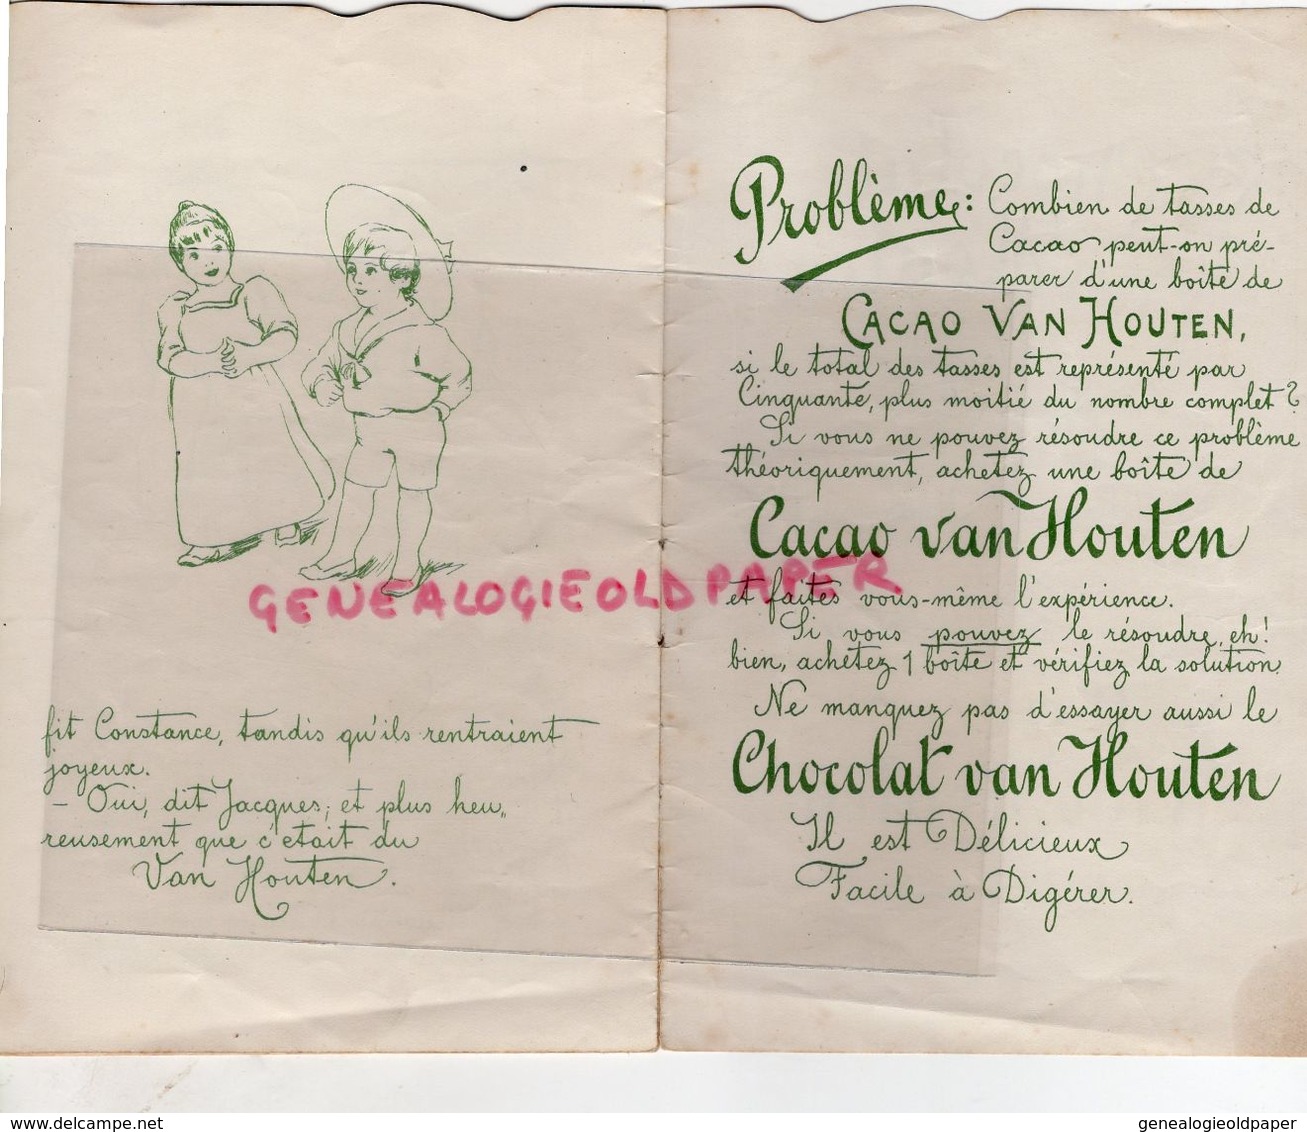 fit Constance, tandis qu'ils rentraient
joyeux.
- Oui, dit Jacques; et plus heu„
reusement que c'etait du
Van Houten.
Problème: Combien de tasses de
Cacao peut-on pré-
parer d'une boîte de
CACAO VAN HOUTEN,
si le total des tasses est représenté par
Cinquante, plus moitié du nombre complet?
Si vous ne pouvez résoudre ce problème
théoriquement, achetez une boîte de
Cacao van Houten
et faites vous-même l'expérience.
Si vous pouvez le résoudre, eh!
bien, achetez 1 boîte et vérifiez la solution.
Ne manquez pas d'essayer aussi le
Chocolat van Houten
Il est Délicieux
Facile à Digérer.
GENEALOGIEOLDPAPER
delcampe.net
genealogieoldpaper